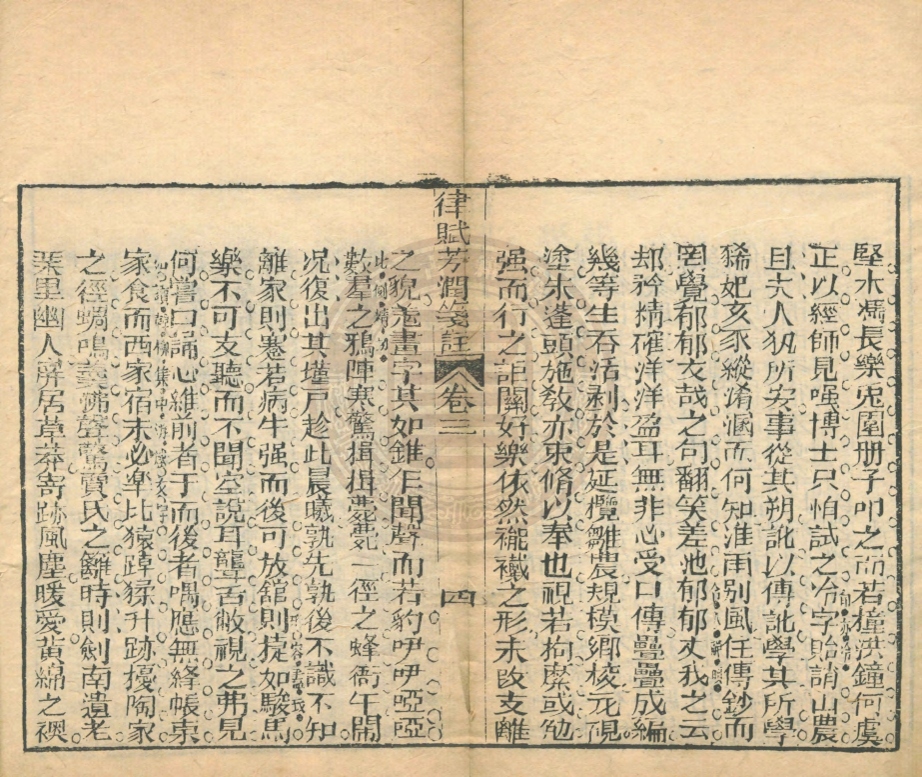 堅木馮長樂兎園册子叩之而若撞洪鐘何虞
正以經師見嗤博士只怕試之冷字貽誚山農
且夫人狃所安事從其朔訛以傳訛學其所學
豨妃亥豕縱淆溷而何知淮雨别風任傳鈔而
罔覺郁郁文哉之句翻笑差池郁郁丈我之云
却矜精確洋洋盈耳無非心受口傳疊疊成編
幾等生吞活剥於是延欖雛農規模鄉校元硯
塗朱逢頭施敎亦束脩以奉也視若拘縻或勉
强而行之詎關好樂依然襬襶之形未改支離
律賦芳潤箋註
卷三
四
之貌走畫字其如錐乍聞聲而若豹咿咿啞啞
數羣之鴉陣寒驚揖揖薨薨一徑之蜂衙午閙
况復出其墐戸趁此晨曦孰先孰後不識不知
離家則蹇若病牛强而後可放館則㨗如駿馬
樂不可支聽而不聞空説耳聾舌敝視之弗見
何嘗口誦心維前者于而後者喁應無絳帳東
家食而西家宿未必皐比猿踔猱升跡擾陶家
之徑蜩鳴螿沸聲驚賈氏之籬時則劍南遺老
栗里幽人屏居草莽寄跡風塵暖愛黃綿之襖